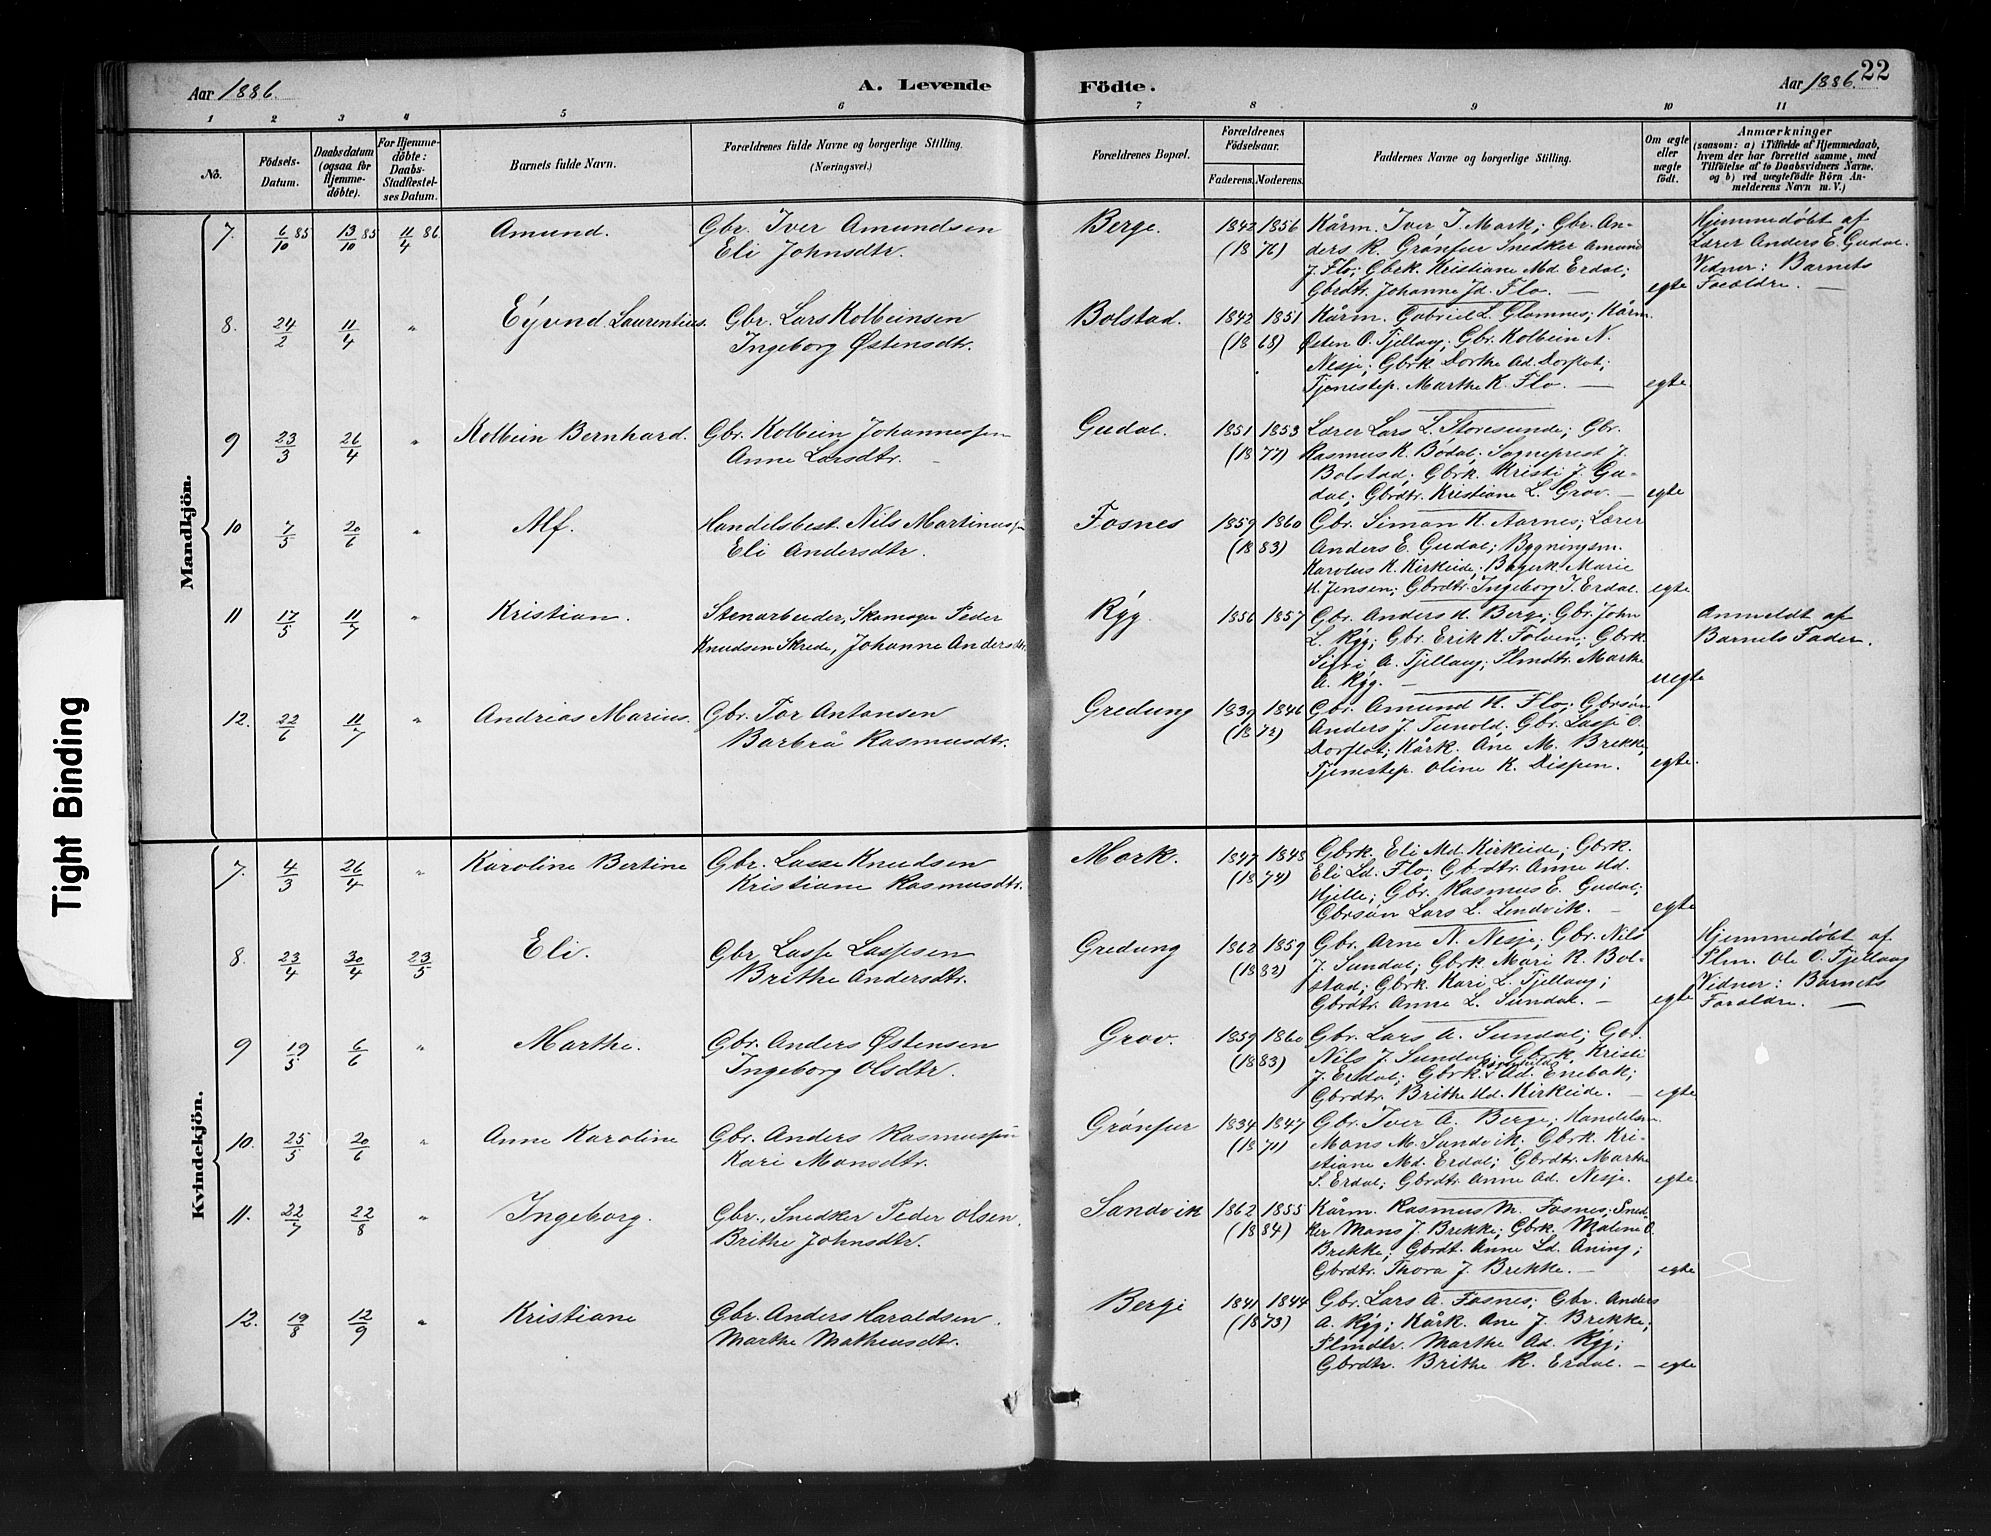 22
Aar 1886.
A. Levende
Födte.
Aar 1886.
1 2 3 4 5 6 7 8 9 10 11
No.
Födsels-Datum.
Daabsdatum (ogsaa for Hjemmedöbte).
For Hjemmedöbte: Daabs-Stadfæstelses Datum.
Barnets fulde Navn.
Forældrenes fulde Navne og borgerlige Stilling. (Næringsvei.)
Forældrenes Bopæl.
Forældrenes Födselsaar.
Faderens. Moderens.
Faddernes Navne og borgerlige Stilling.
Om ægte eller uægte födt.
Anmærkninger
(saasom: a) i Tilfælde af Hjemmedaab,
hvem der har forrettet samme, med
Tilföielse af to Daabsvidners Navne,
og b) ved uægtefödte Börn Anmelderens Navn m. V.)
Mandkjön.
7. 6/10 85 13/10 85 11/4 86. Amund. Gbr. Iver Amundsen
Eli Johnsdtr.
Berge. 1842 1856 (1876)
Kårm. Iver J. Mork; Gbr. An-
ders R. Grönfur Snedker Amund
J. Flo; Gbrk. Kristiane Md. Erdal;
Gbrdtr. Johanne Jd. Flo. —
egte
Hjemmedöbt af
Lærer Anders E. Gudal.
Vidner: Barnets
Foreldre. —
8. 24/2 11/4 " Eyvnd Laurentius. Gbr. Lars Kolbeinsen
Ingeborg Östensdtr.
Bolstad. 1842 1851 (1868)
Kårm. Gabriel L. Glomnes; Kårm.
Östen O. Tjellaug; Gbr. Kolbein N.
Nesje; Gbrk. Dorthe Ad. Dorflot;
Tjenestep. Marthe K. Flo. —
egte
9 23/3 26/4 " Kolbein Bernhard. Gbr. Kolbein Johannessen
Anne Larsdtr. —
Gudal. 1851 1853 (1877)
Lærer Lars L. Storesunde; Gbr.
Rasmus K. Bödal; Sogneprest J.
Bolstad; Gbrk. Kristi J. Gu-
dal; Gbrdtr. Kristiane L. Grov. —
egte
10 7/5 20/6 " Alf. Handelsbest. Nils Martinussen
Eli Andersdtr.
Fosnes 1859 1860 (1883)
Gbr. Simon K. Aarnes; Lærer
Anders E. Gudal; Bygningsm.
Karolus K. Kirkeide; Bagerk. Marie
H. Jensen; Gbrdtr. Ingeborg I. Erdal.
egte
11 17/5 11/7 " Kristian. Stenarbeider, Skomager Peder
Knudsen Skrede, Johanne Andersdtr.
Ryg. 1856 1857
Gbr. Anders H. Berge; Gbr. John
L. Ryg; Gbr. Erik K. Folven; Gbrk.
Sigri A. Tjellaug; Plmdtr. Marthe
A. Ryg. —
uegte
Anmeldt af
Barnets Fader.
12. 22/6 11/7 " Andreas Marius. Gbr. Tor Antonsen
Barbrå Rasmusdtr.
Gredung 1839 1846 (1873)
Gbr. Amund H. Flo; Gbrsön
Anders J. Tunold; Gbr. Lasse O.
Dorflot; Kårk. Ane M. Brekke;
Tjenestep. Oline K. Dispen.
egte.
Kvindekjön.
7. 4/3 26/4 " Karoline Bertine Gbr. Lasse Knudsen
Kristiane Rasmusdtr.
Mork. 1847 1848 (1874)
Gbrk. Eli Md. Kirkeide; Gbrk.
Eli Ld. Flo; Gbrdtr. Anne Hd.
Hjelle; Gbr. Rasmus E. Gudal;
Gbrsön Lars L. Lendvik. —
egte
8. 23/4 30/4 23/5 Eli. Gbr. Lasse Lassesen
Brithe Andersdtr.
Gredung 1862 1859 (1882)
Gbr. Arne N. Nesje; Gbr. Nils
J. Sundal; Gbrk. Mari R. Bol-
stad; Gbrk. Kari L. Tjellaug;
Gbrdtr. Anne L. Sundal. —
egte
Hjemmedöbt af
Plm. Ole O. Tjellaug
Vidner: Barnets
Foreldre. —
9 19/5 6/6 " Marthe. Gbr. Anders Östensen
Ingeborg Olsdtr.
Grov. 1859 1860 (1883)
Gbr. Lars A. Sundal; Gbr.
Nils J. Sundal; Gbrk. Kristi
J. Erdal; Gbrk. Ad. Enebak;
Gbrdtr. Brithe Hd. Kirkeide. —
egte
10. 25/5 20/6 " Anne Karoline Gbr. Anders Rasmussen
Kari Monsdtr.
Grönfur 1834 1847 (1871)
Gbr. Iver A. Berge; Handelsm.
Mons M. Sandvik; Gbrk. Kri-
stiane Md. Erdal; Gbrdtr. Marthe
S. Erdal; Gbrdtr. Anne Ad. Nesje.
egte
11. 22/7 22/8 " Ingeborg. Gbr., Snedker Peder Olsen.
Brithe Johnsdtr.
Sandvik 1862 1855 (1884)
Kårm. Rasmus M. Fosnes; Sned-
ker Mons J. Brekke; Gbrk. Malene O.
Brekke; Gbrdt. Anne Ld. Aning;
Gbrdtr. Thora J. Brekke. —
egte
12. 19/8 12/9 " Kristiane Gbr. Anders Haraldsen.
Marthe Matheusdtr.
Berge 1841 1844 (1873)
Gbr. Lars A. Fosnes; Gbr. Anders
A. Ryg; Kårk. Ane J. Brekke;
Plmdtr. Marthe Ad. Ryg;
Gbrdtr. Brithe R. Erdal. —
egte
Tight Binding